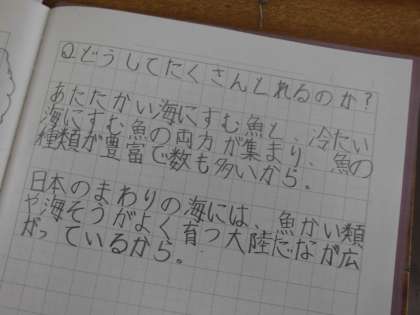 Q.どうしてたくさんとれるのか?
あたたかい海にすむ魚と、冷たい
海にすむ魚の両方が集まり、魚の
種類が豊富で数も多いから。
日本のまわりの海には、魚かい類
や海そうがよく育つ大陸だなが広
がっているから。